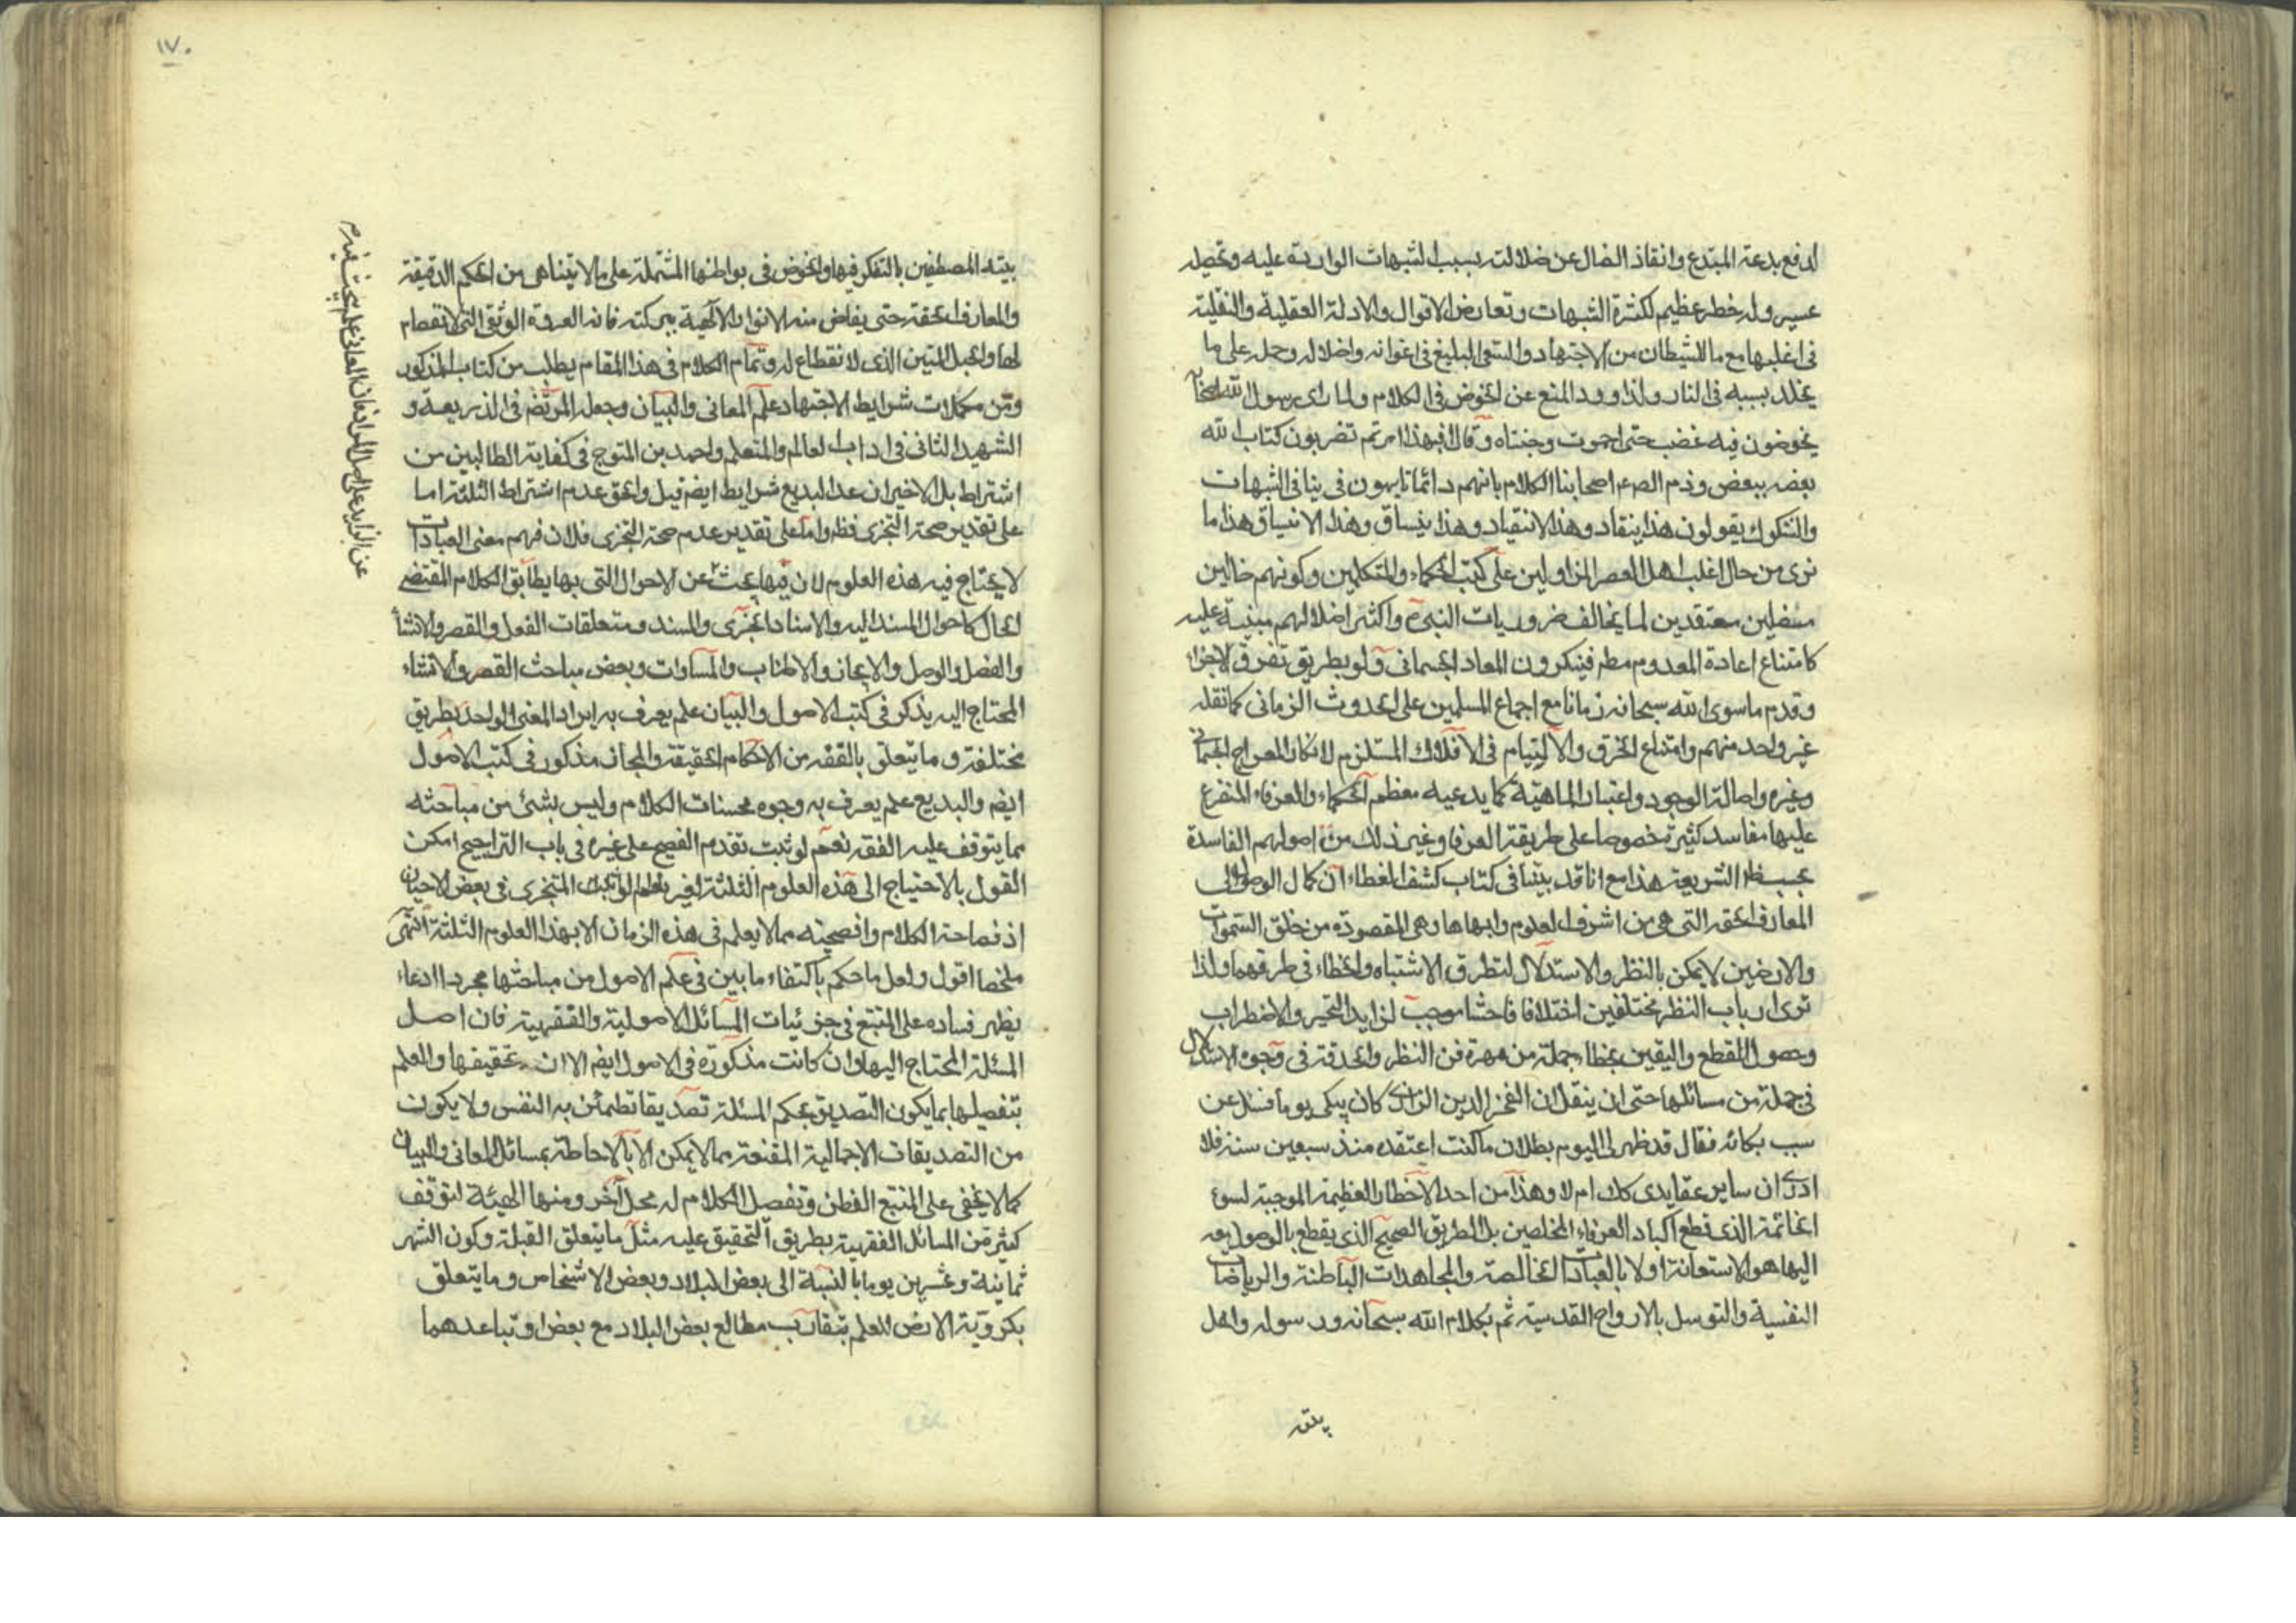 لدفع بدعة المبتدع وانقاذ الضال عن ضلالته بسبب الشبهات الواردة عليه وتحصيله
عسير وله خطر عظيم لكثرة الشبهات وتعارض الاقوال والادلة العقلية والنقلية
فى اغلبها مع ما للشيطان من الاجتهاد والسعى البليغ فى اغوائه واضلاله وحمله على ما
يخلد بسببه فى النار ولذا ورد المنع عن الخوض فى الكلام ولما راى رسول الله
يخوضون فيه غضب حتى احمرت وجنتاه وقال افبهذا امرتم تضربون كتاب الله
بعضه ببعض وذم اصحابنا الكلام بانهم دائما فى الشبهات
والشكوك يقولون هذا ينقاد وهذا لا ينقاد وهذا ينساق وهذا لا ينساق هذا ما
نرى من حال اغلب اهل العصر المزاولين على كتب الحكماء والمتكلمين وكونهم ضالين
مضلين معتقدين لما يخالف ضروريات النبى واكثر اضلالهم مبنية عليه
كامتناع اعادة المعدوم مطم فينكرون المعاد الجسمانى ولو بطريق تفرق الاجزاء
وقدم ما سوى الله سبحانه زمانا مع اجماع المسلمين على الحدوث الزمانى كما نقله
غير واحد منهم وامتناع الخرق والالتيام فى الافلاك المستلزم لانكار المعراج الجسمانى
وغيره واصالة الوجود واعتبار الماهية كما يدعيه معظم الحكماء والعرفاء المتفرع
عليها مفاسد كثيرة خصوصا على طريقة العرفا وغير ذلك من اصولهم الفاسدة
بحسب ظ الشريعة هذا مع انا قد بينا فى كتاب كشف الغطاء ان كمال الوصول الى
المعارف الحقة التى هى من اشرف العلوم وابهاها وهى المقصودة من خلق السموات
والارضين لا يمكن بالنظر والاستدلال لتطرق الاشتباه والخطاء فى طرقهما ولذا
ترى ارباب النظر مختلفين اختلافا فاحشا موجب لزايد التحير والاضطراب
وحصول القطع واليقين بخطاء جملة من مهرة فن النظر والحدقة فى وجوه الاستدلال
فى جملة من مسائلها حتى ان ينقل ان الفخر الدين الرازى كان يبكى يوما فسئل عن
سبب بكائه فقال قد ظهر لى اليوم بطلان ما كنت اعتقده منذ سبعين سنة فلا
ادرى ان ساير عقايدى كك ام لا وهذا من احد الاخطار العظيمة الموجبة لسوء
الخاتمة الذى قطع اكباد العرفاء المخلصين بل الطريق الصحيح الذى يقطع بالوصول معه
اليها هو الاستعانة اولا بالعبادات الخالصة والمجاهدات الباطنة والرياضات
النفسية والتوسل بالارواح القدسية ثم بكلام الله سبحانه ورسوله واهل
بيته
١٧٠
بيته المصطفين بالتفكر فيها والخوض فى بواطنها المشتملة على ما لا يتناهى من الحكم الدقيقة
والمعارف الحقة حتى يفاض منه الانوار الالهية ببركته فانه العروة الوثقى التى لا انفصام
لها والحبل المتين الذى لا نقطاع له وتمام الكلام فى هذا المقام يطلب من كتاب المذكور
ومن مكملات شرايط الاجتهاد علم المعانى والبيان وجعله المرتضى فى الذريعة و
الشهيد الثانى فى اداب العالم والمتعلم واحمد بن المتوج فى كفاية الطالبين من
اشتراط بل الاخيران عدا البديع شرايط ايضم قيل والحق عدم اشتراط الثلثة اما
على تقدير صحة التجزى فظ واما على تقدير عدم صحة التجزى فلان فهم معنى العبادات
لا يحتاج فيه هذه العلوم لان فيها يبحث عن الاحوال التى بها يطابق الكلام المقتضى
الحال كاحوال المسند اليه والاسناد الخبرى والمسند ومتعلقات الفعل والقصر والانشاء
والفصل والوصل والايجاز والاطناب والمساوات وبعض مباحث القصر والانشاء
المحتاج اليه يذكر فى كتب الاصول والبيان علم يعرف به ايراد المعنى الواحد بطريق
مختلفة وما يتعلق بالفقه من الاحكام الحقيقة والمجاز مذكور فى كتب الاصول
ايضم والبديع علم يعرف به وجوه محسنات الكلام وليس بشئ من مباحثه
مما يتوقف عليه الفقه نعم لو ثبت تقدم الفصيح على غيره فى باب التراجيح امكن
القول بالاحتياج الى هذه العلوم الثلثة لغير المتجزى فى بعض الاحيان
اذ فصاحة الكلام وافصحيته مما لا يعلم فى هذه الزمان الا بهذا العلوم الثلثة انتهى
ملخصا اقول ولعل ما حكم باكتفاء ما بين فى علم الاصول من مباحثها مجرد ادعاء
يظهر فساده على المتتبع فى جزئيات المسائل الاصولية والفقهية فان اصل
المسئلة المحتاج اليها وان كانت مذكورة فى الاصول ايضم الا ان تحقيقها والعلم
بتفصيلها بما يكون التصديق بحكم المسئلة تصديقا تطمئن به النفس ولا يكون
من التصديقات الاجمالية المقنعة مما لا يمكن الا بالاحاطة بمسائل المعانى والبيان
كما لا يخفى على المتتبع الفطن وتفصل الكلام له محل آخر ومنها الهيئة لتوقف
كثير من المسائل الفقهية بطريق التحقيق عليه مثل ما يتعلق القبلة وكون الشهر
ثمانية وعشرين يوما بالنسبة الى بعض البلاد وبعض الاشخاص وما يتعلق
بكروية الارض للعلم بتقارب مطالع بعض البلاد مع بعض او تباعدهما
عن الزايد على اصل المراد فان المعانى علم يبحث فيه